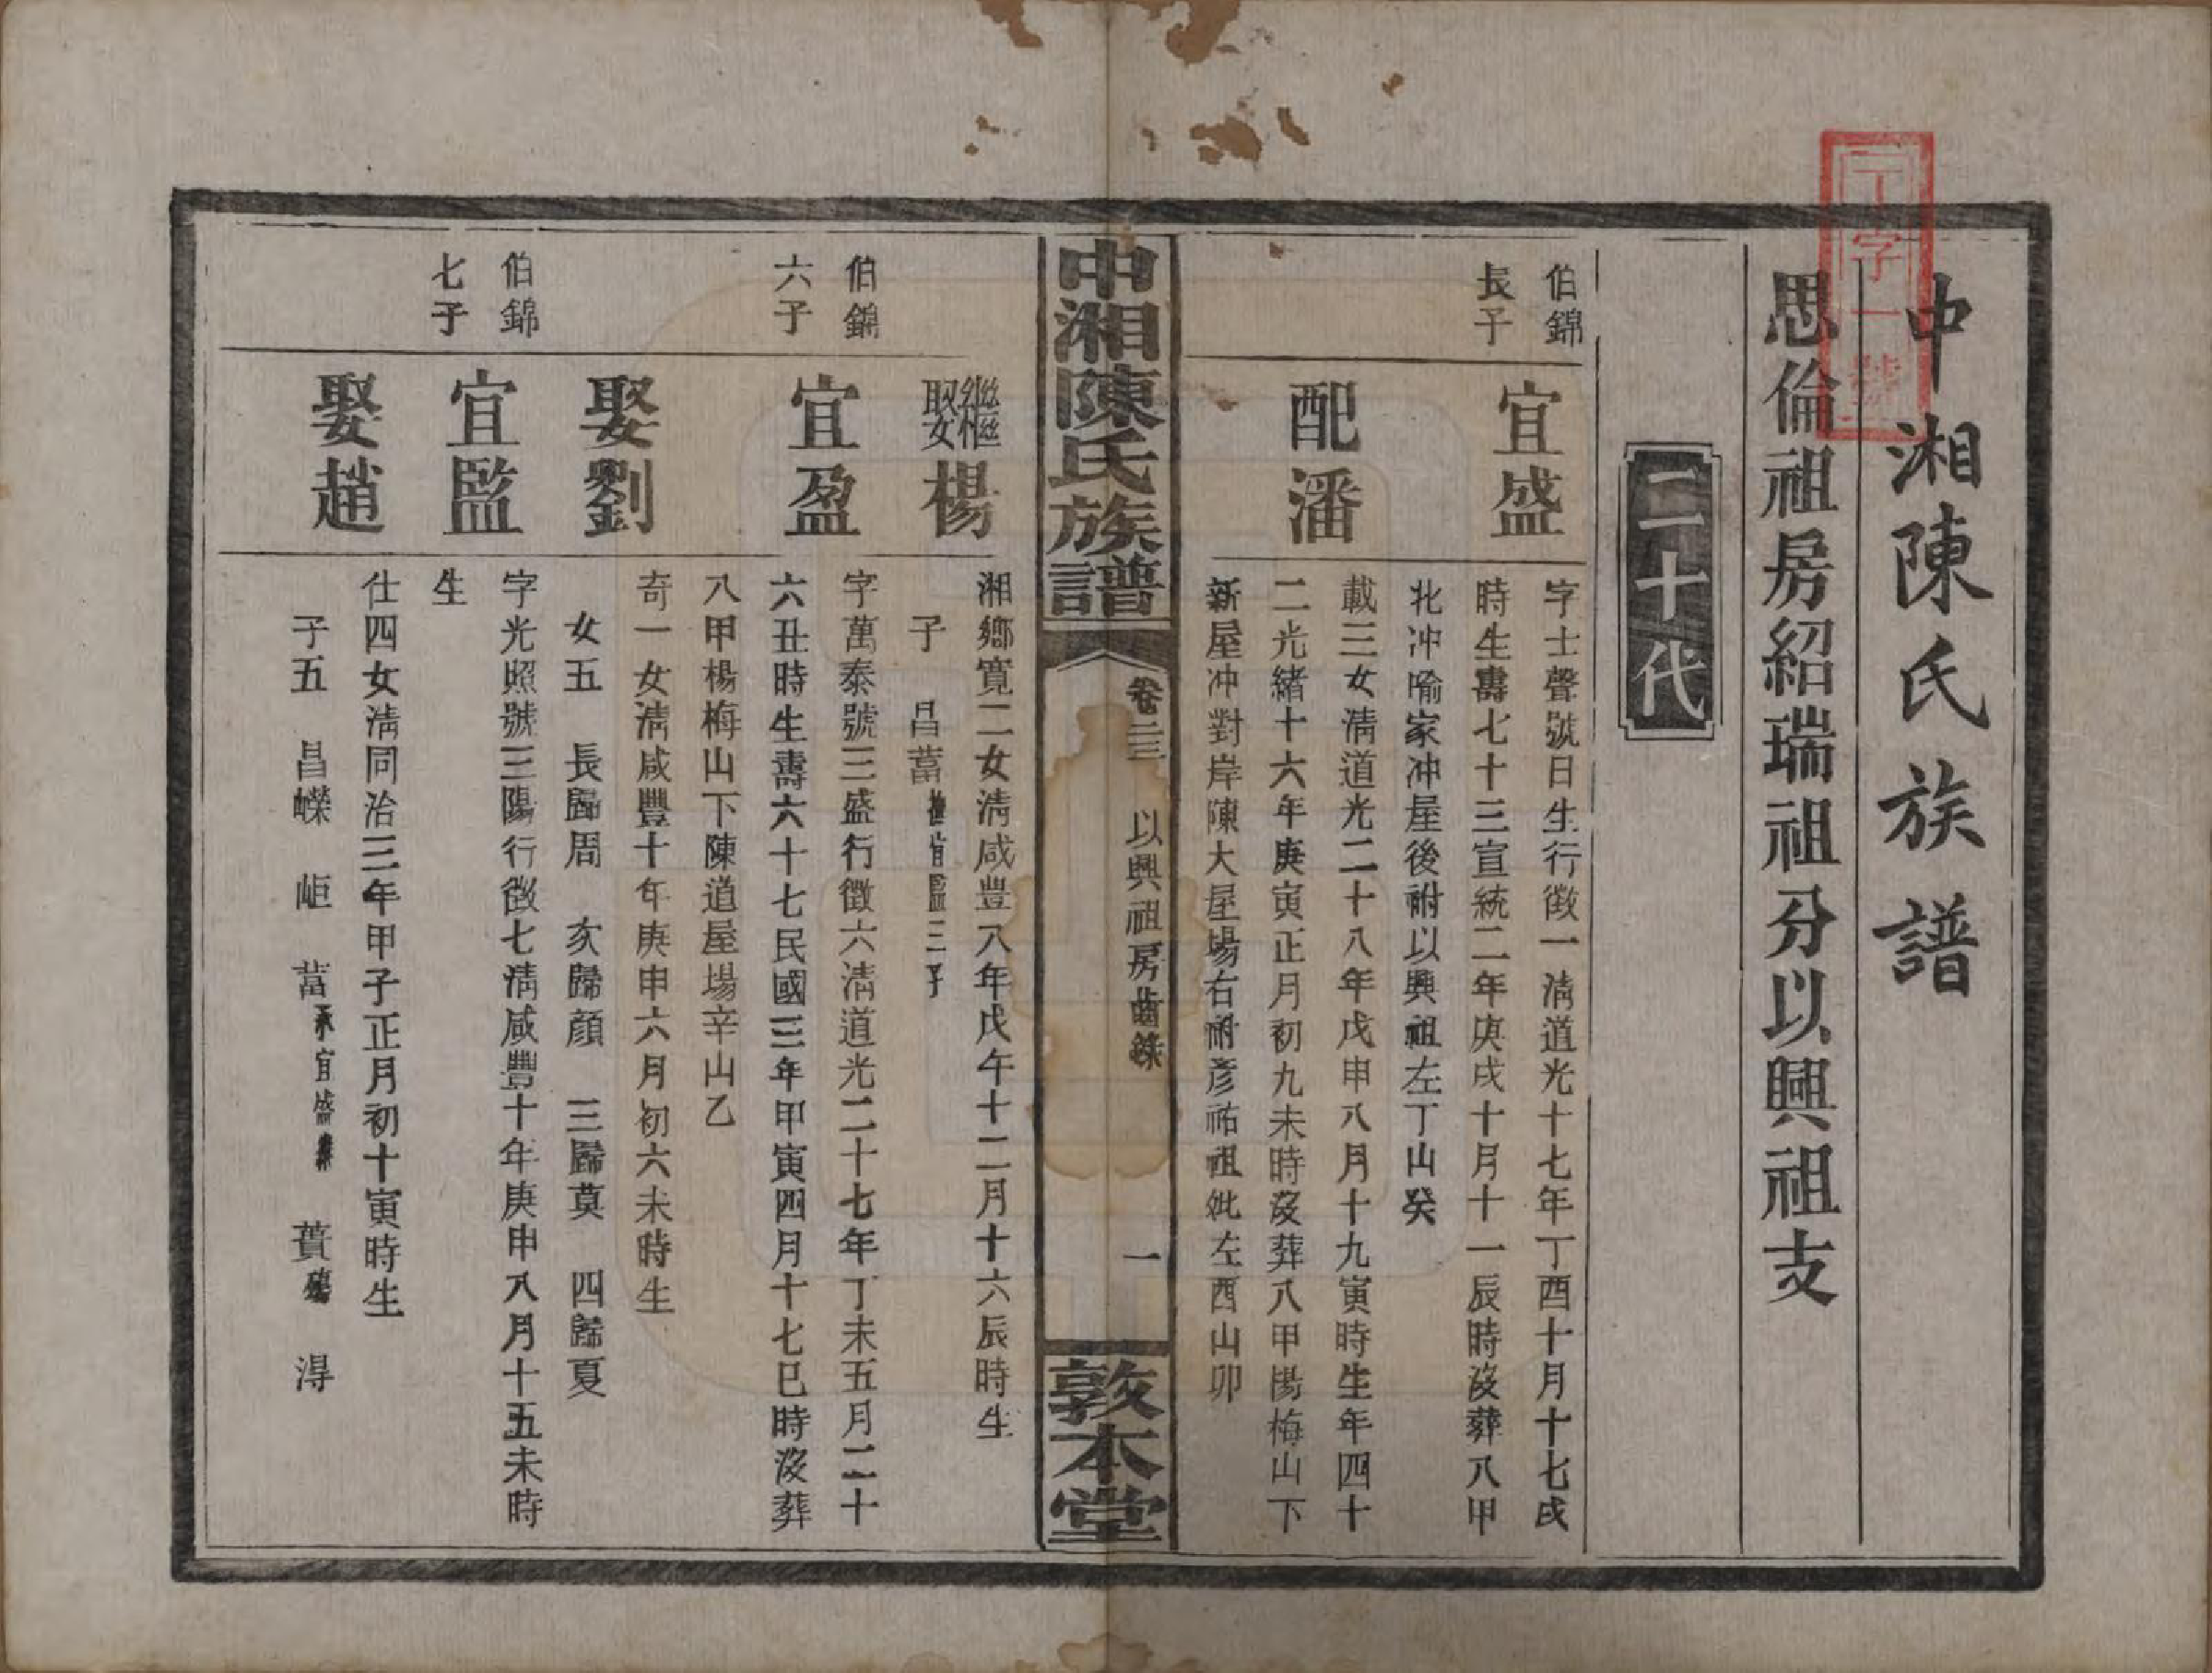 丁字一號
中湘陳氏族譜
思倫祖房紹瑞祖分以興祖支
二十代
伯錦
長子
宜盛
字士聲號日生行徵一清道光十七年丁酉十月十七戌
時生壽七十三宣統二年庚戌十月十一辰時沒葬八甲
北冲喻家冲屋後祔以興祖左丁山癸
配潘
載三女清道光二十八年戊申八月十九寅時生年四十
二光緒十六年庚寅正月初九未時沒葬八甲楊梅山下
新屋冲對岸陳大屋場右祔彥祐祖妣左酉山卯
中湘陳氏族譜
卷二三
以興祖房齒錄
一
敦本堂
繼娶楊
湘鄉寬二女清咸豐八年戊午十二月十六辰時生
子 昌蒕撫宜監三子
伯錦
六子
宜盈
字萬泰號三盛行徵六清道光二十七年丁未五月二十
六丑時生壽六十七民國三年甲寅四月十七巳時沒葬
八甲楊梅山下陳道屋場辛山乙
娶劉
奇一女清咸豐十年庚申六月初六未時生
女五 長歸周 次歸顏 三歸莫 四歸夏
伯錦
七子
宜監
字光照號三陽行徵七清咸豐十年庚申八月十五未時
生
娶趙
仕四女清同治三年甲子正月初十寅時生
子五 昌嶸 岠 蒕承宜盛 蕡殤 淂